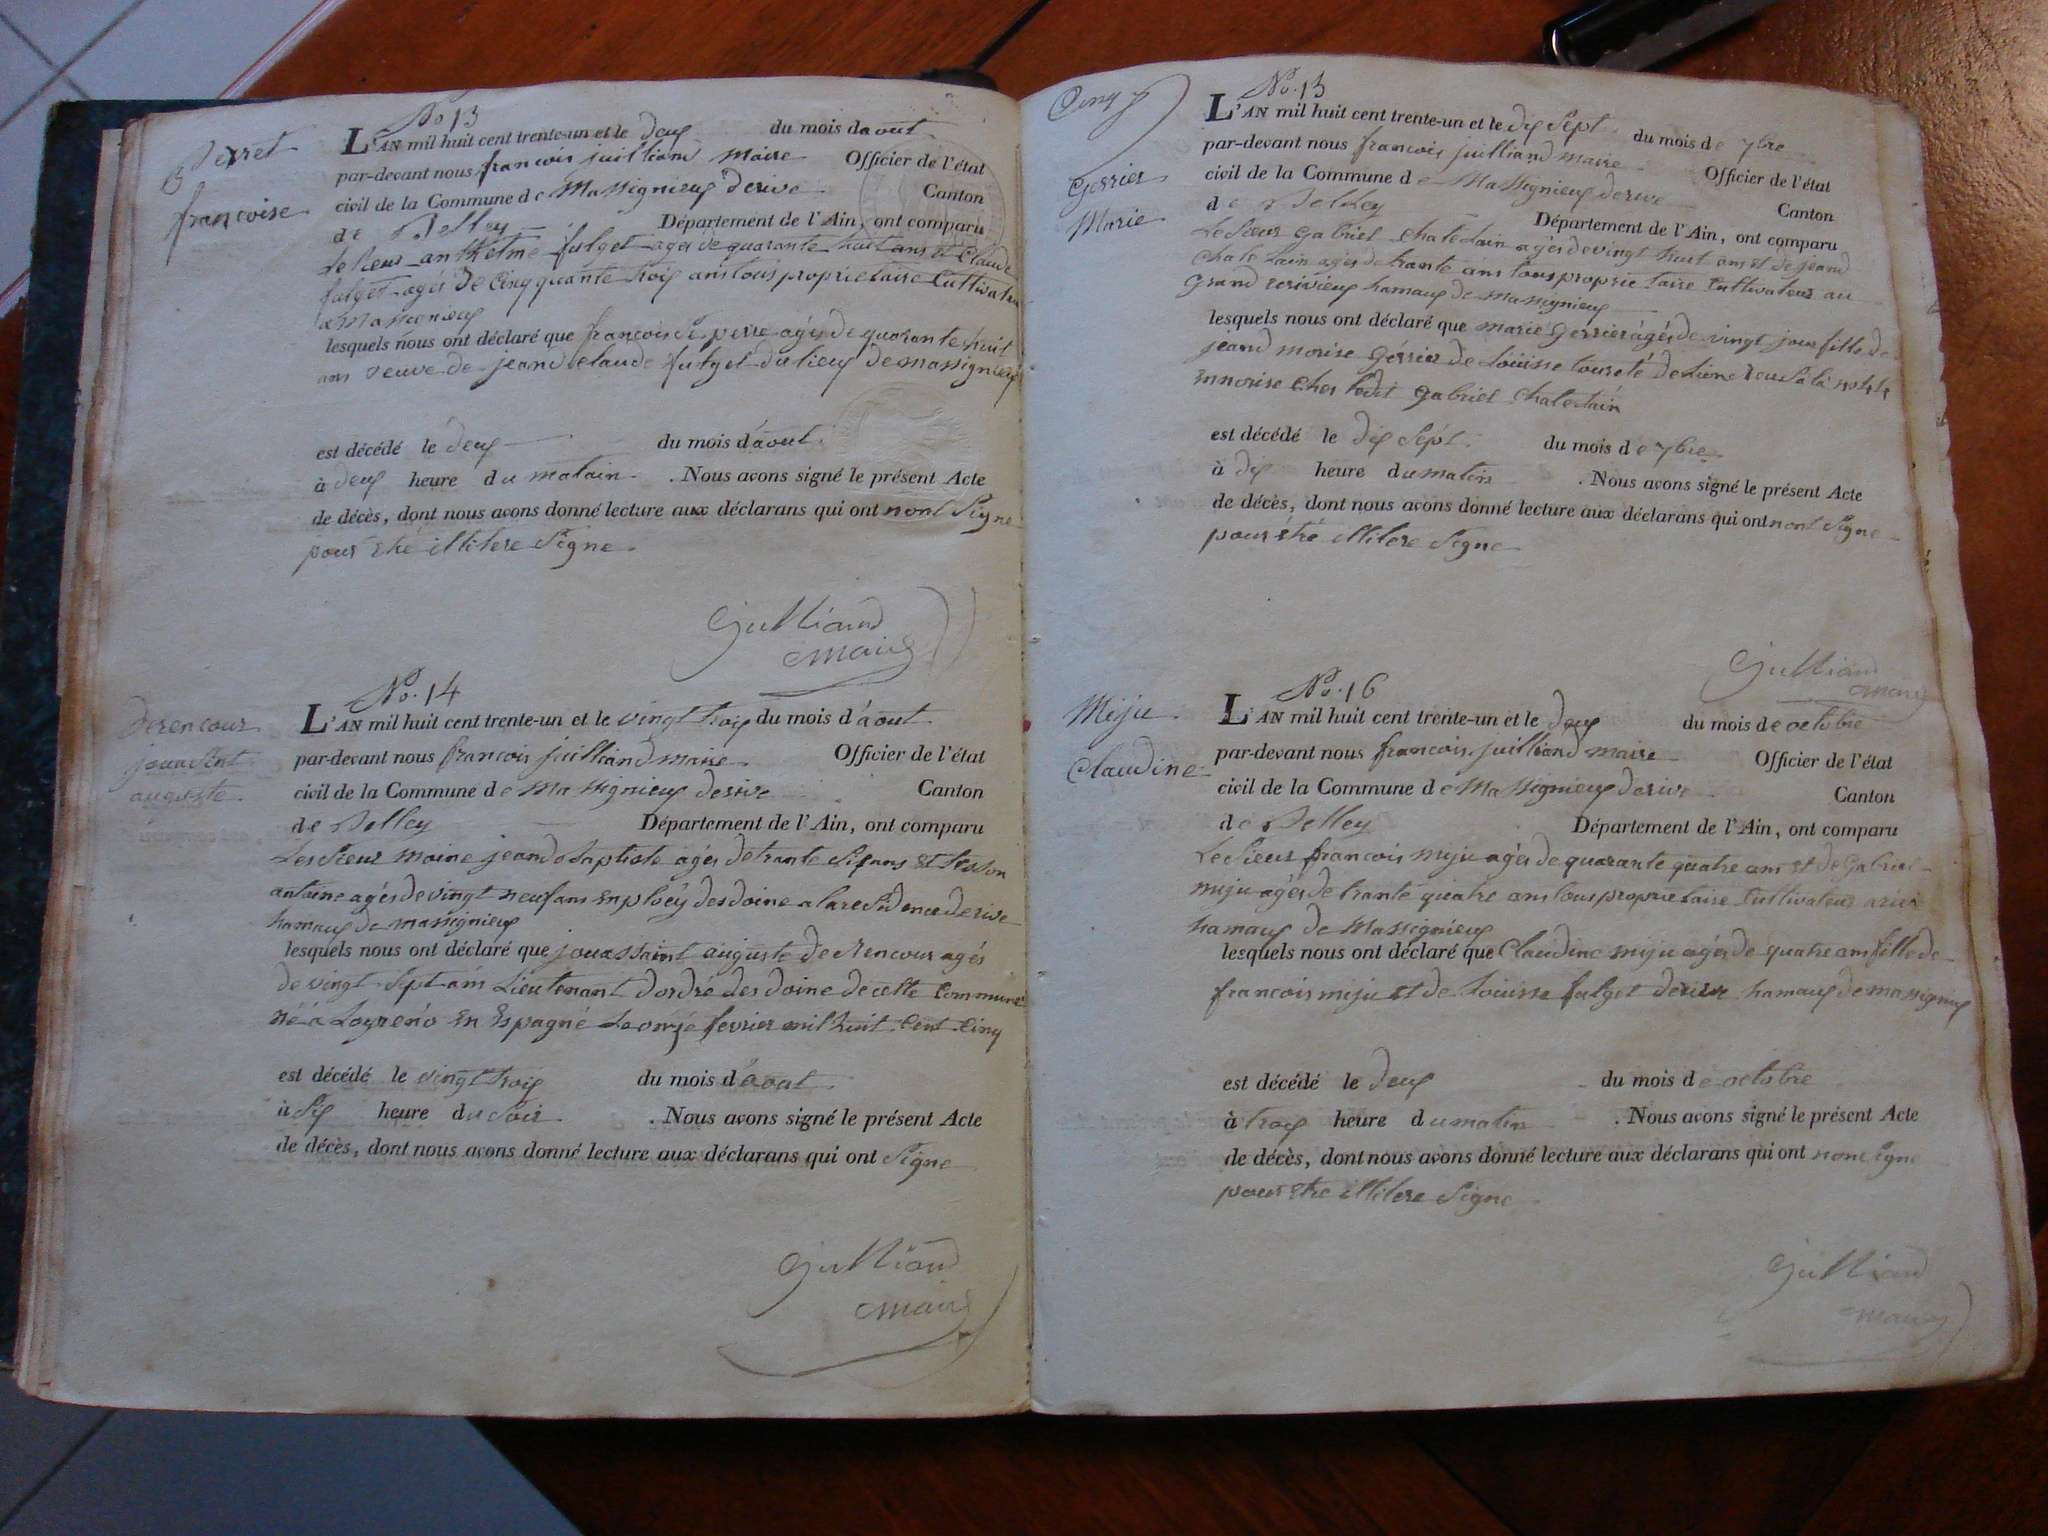 No 13
Perret
françoise
L'AN mil huit cent trente-un et le deux du mois daout
par-devant nous francois juilliand maire Officier de l'état
civil de la Commune de Massignieux derive Canton
de Belley Département de l'Ain, ont comparu
Le sieur anthelme fulget agés de quarante huit ans et Claude
fulget agés de Cinquante troix ans tous proprietaire Cultivateur
a Massignieux
lesquels nous ont déclaré que francoise perre agés de quarante huit
ans veuve de jeand Claude fulget du lieux de massignieux
est décédé le deux du mois d'aout
à deux heure du matain . Nous avons signé le présent Acte
de décès, dont nous avons donné lecture aux déclarans qui ont nont Signe
pour etre illitere Signe
Juilliand
maire
No. 14
Derencour
jouassint
auguste
L'AN mil huit cent trente-un et le vingt troix du mois d'aout
par-devant nous francois juilliand maire Officier de l'état
civil de la Commune de Massignieux derive Canton
de Belley Département de l'Ain, ont comparu
Les Sieur moine jeand Baptiste agés de trante Six ans et
antoine agés de vingt neuf ans employ des doine a la residence de rive
hamaux de massignieux
lesquels nous ont déclaré que jouassaint auguste de Rencour agés
de vingt Sept ans Lieutenant d'ordre des doine de cette Commune
né a en Espagne Le onze fevrier mil huit Cent Cinq
est décédé le vingt troix du mois d'aout
à Six heure du Soir . Nous avons signé le présent Acte
de décès, dont nous avons donné lecture aux déclarans qui ont Signe
Juilliand
maire
Cinq
No. 15
Gerrier
Marie
L'AN mil huit cent trente-un et le dix Sept du mois de 7bre
par-devant nous francois juilliand maire Officier de l'état
civil de la Commune de Massignieux derive Canton
de Belley Département de l'Ain, ont comparu
Le Sieur Gabriel Chatelain agés de vingt huit ans et de jeand
Chatelain agés de trante ans tous proprietaire Cultivateur au
Grand hamaux de massignieux
lesquels nous ont déclaré que marie Gerrier agés de vingt jour fille de
jeand morise Gérrier de Louisse
ennorise Ches ledit Gabriel Chatelain
est décédé le dix Sept du mois de 7bre
à dix heure du matin . Nous avons signé le présent Acte
de décès, dont nous avons donné lecture aux déclarans qui ont nont Signe
pour étre illitere Signe
Juilliand
maire
No. 16
Miju
Claudine
L'AN mil huit cent trente-un et le deux du mois de octobre
par-devant nous francois juilliand maire Officier de l'état
civil de la Commune de Massignieux derive Canton
de Belley Département de l'Ain, ont comparu
Le Sieur francois miju agés de quarante quatre ans et de Gabriel
miju agés de trante quatre ans tous proprietaire Cultivateur a rive
hamaux de Massignieux
lesquels nous ont déclaré que Claudine miju agés de quatre ans fille de
francois miju et de Louisse fulget de rive hamaux de massignieux
est décédé le deux du mois de octobre
à troix heure du matin . Nous avons signé le présent Acte
de décès, dont nous avons donné lecture aux déclarans qui ont non Signe
pour etre illitere Signe
Juilliand
maire